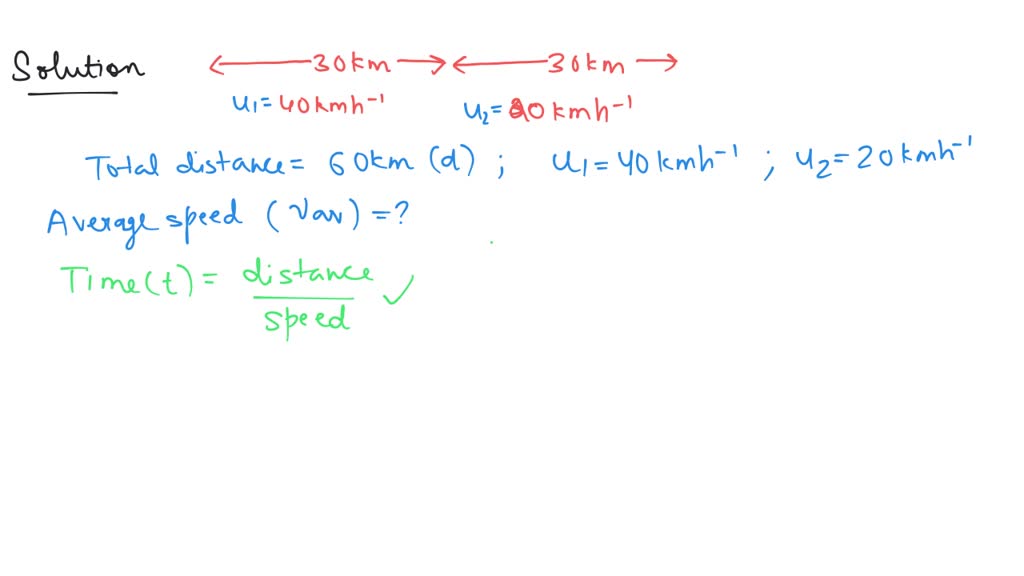 Solution
30km 30km
u₁=40kmh⁻¹ u₂=20kmh⁻¹
Total distance= 60km (d) ; u₁=40kmh⁻¹ ; u₂=20kmh⁻¹
Average speed (Vav) =?
Time(t)= distance ✓
speed